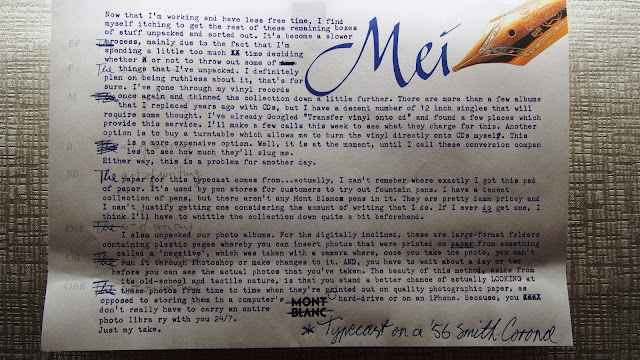 Now that I'm working and have less free time, I find
myself itching to get the rest of these remaining boxes
of stuff unpacked and sorted out. It's become a slower
EF process, mainly due to the fact that I'm
spending a little too much XX time deciding
whether X or not to throw out some of
F The things that I've unpacked. I definitely
plan on being ruthless about it, that's for
sure. I've gone through my vinyl records
M once again and thinned the collection down a little further. There are more than a few albums
that I replaced years ago with CDs, but I have a decent number of 12 inch singles that will
require some thought. I've already Googled "Transfer vinyl onto cd" and found a few places which
provide this service. I'll make a few calls this week to see what they charge for this. Another
option is to buy a turntable which allows me to burn the vinyl directly onto CDs myself. This
B is a more expensive option. Well, it is at the moment, until I call these conversion compan
ies to see how much they'll slug me.
Either way, this is a problem for another day.
BB The art of writing
paper for this typecast comes from...actually, I can't remeber where exactly I got this pad
of paper. It's used by pen stores for customers to try out fountain pens. I have a decent
collection of pens, but there aren't any Mont Blancs pens in it. They are pretty damn pricey and
I can't justify getting one considering the amount of writing that I do. If I ever do get one, I
think I'll have to whittle the collection down quite a bit beforehand.
OM The art of writing
I also unpacked our photo albums. For the digitally inclined, these are large-format folders
containing plastic pages whereby you can insert photos that were printed on paper from something
called a 'negative', which was taken with a camera where, once you take the photo, you can't
OB run it through Photoshop or make changes to it. AND, you have to wait about a day or two
before you can see the actual photos that you've taken. The beauty of this method, aside from
its old-school and tactile nature, is that you stand a better chance of actually LOOKING at
OBB these photos from time to time when they're printed out on quality photographic paper, as
opposed to storing them in a computer's hard-drive or on an iPhone. Because, you XXXX
don't really have to carry an entire
photo libra ry with you 24/7.
Just my take.
Mei
MONT
BLANC
* Typecast on a '56 Smith-Corona